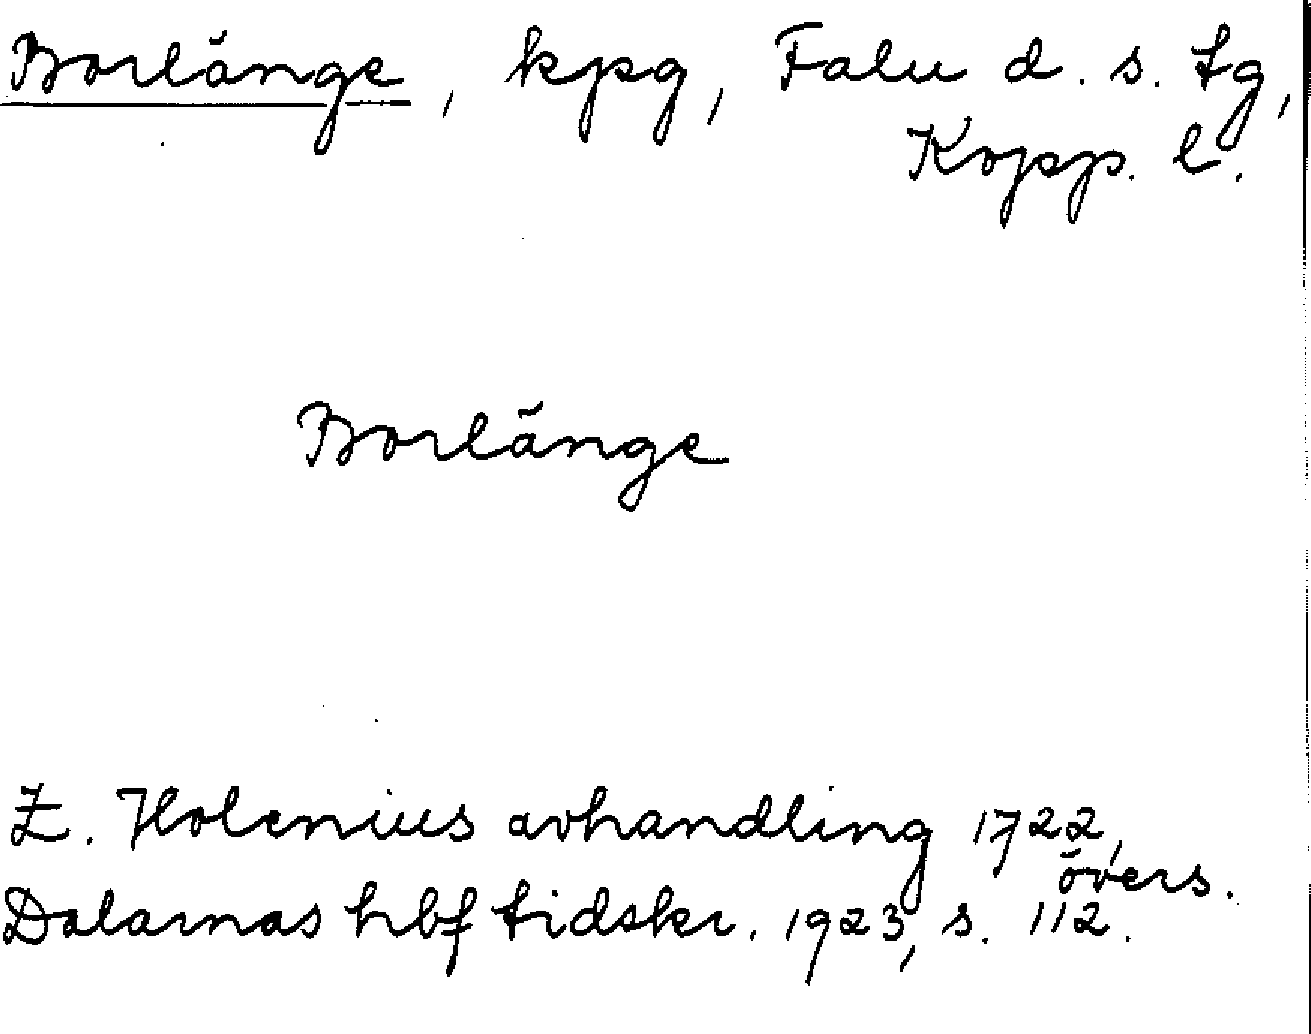 Borlänge, kpg, Falu d. s. tg,
Kopp. l.
Borlänge
Z. Holenius avhandling 1722,
övers.
Dalarnas hbf tidskr. 1923, s. 112.